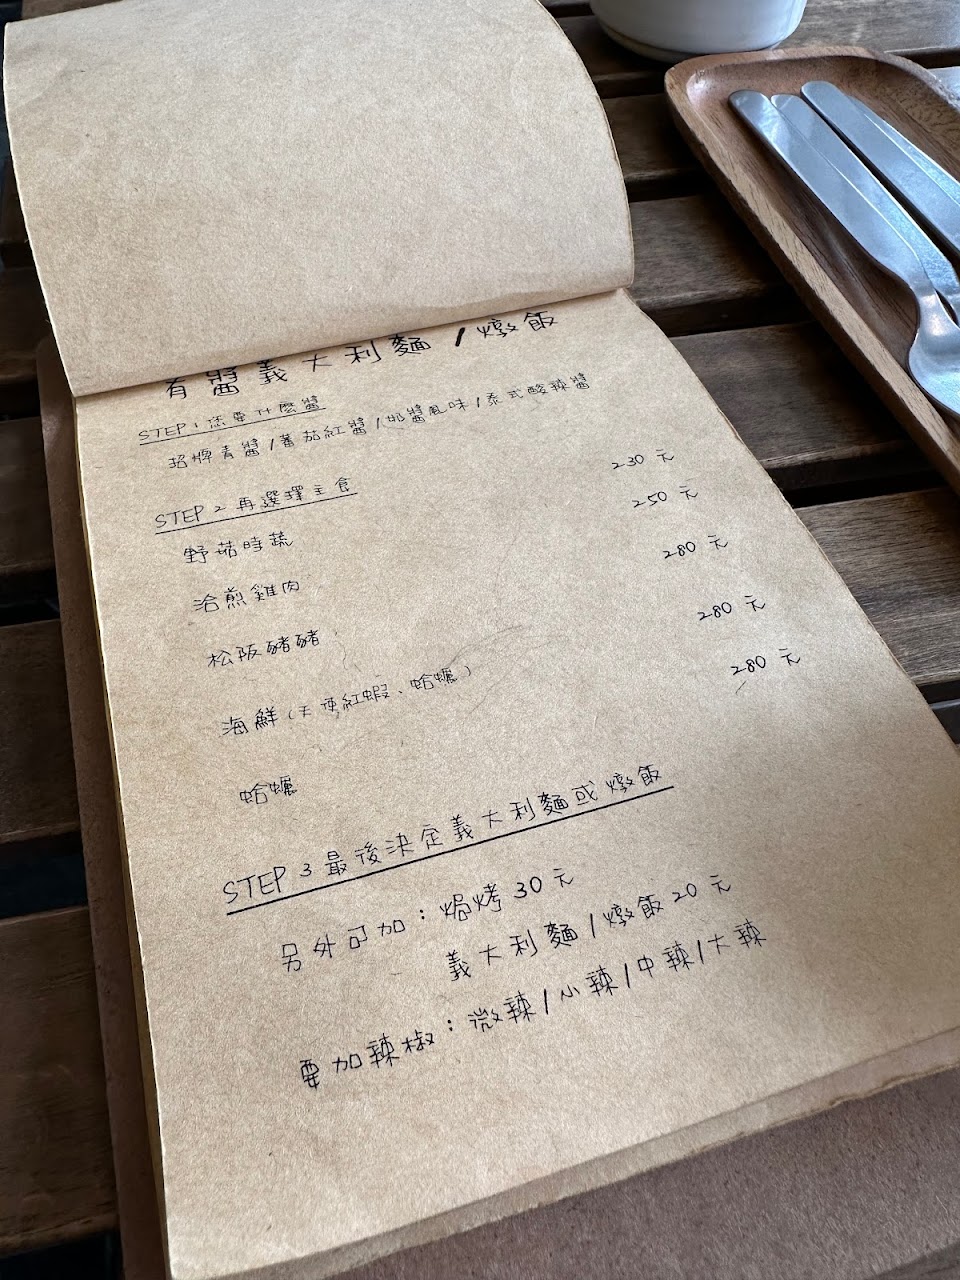 有醬義大利麵/燉飯
STEP 1 您要什麼醬
招牌青醬/蕃茄紅醬/奶醬風味/泰式酸辣醬
STEP 2 再選擇主食
野菇時蔬 230元
洽煎雞肉 250元
松阪豬豬 280元
海鮮(天使紅蝦、蛤蠣) 280元
蛤蠣 280元
STEP 3 最後決定義大利麵或燉飯
另外可加:焗烤30元
義大利麵/燉飯20元
要加辣椒:微辣/小辣/中辣/大辣